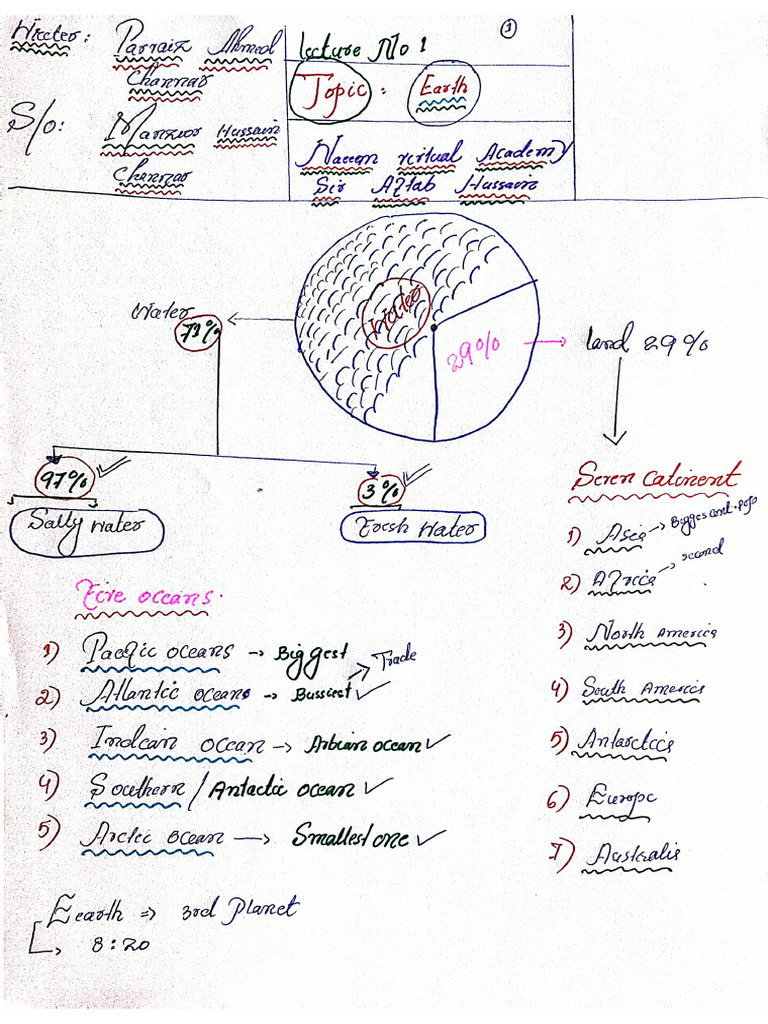 Writer: Parvaiz Ahmed
Channar
S/o: Manzoor Hussain
Channar
Lecture No 1
1
Topic : Earth
Naeem virtual Academy
Sir Aftab Hussain
Water
71%
Water
29%
land 29%
97%
Salty Water
3%
Fresh Water
Seven Catinent
1) Asia → Bigges cont. pop
2) Africa → second
3) North America
4) South America
5) Antarctica
6) Europe
7) Australia
Five oceans.
1) Pacific oceans → Biggest
2) Atlantic oceans → Bussiest → Trade
3) Indian ocean → Arbian ocean
4) Southern / Antactic ocean
5) Arctic ocean → Smallest one
Eearth ⇒ 3rd Planet
→ 8:20